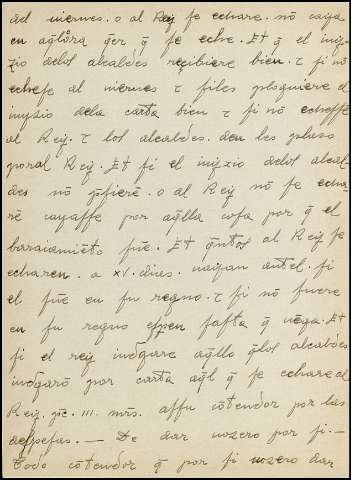 ād viernes. o al Rey se echare. nō caya
en aq̄lora q̄er q̄ se eche. Et q̄ el iuy-
zio delos alcaldes recibiere bien. τ si nō
echesse al viernes τ si les plogiere el
iuyzio dela carta bien τ si nō echesse
al Rey. τ los alcaldes. den les plazo
poral Rey. Et si el iuyzio delos alcal-
des nō p̄siere. o al Rey nō se echa-
re cayasse por aq̄lla cosa por q̄ el
baraiamiēto fue. Et q̄ntos al Rey se
echaren. a xv. dias. vayan antel. si
el fue en su regno. τ si nō fuere
en su regno esperen fasta q̄ vēga. Et
si el rey iudgare aq̄llo q̄ los alcaldes
iudgarō por carta aq̄l q̄ se echare al
Rey. pe. III. mrs. assu cōtendor por las
despesas. — De dar vozero por si. —
Todo cōtendor q̄ por si vozero dar